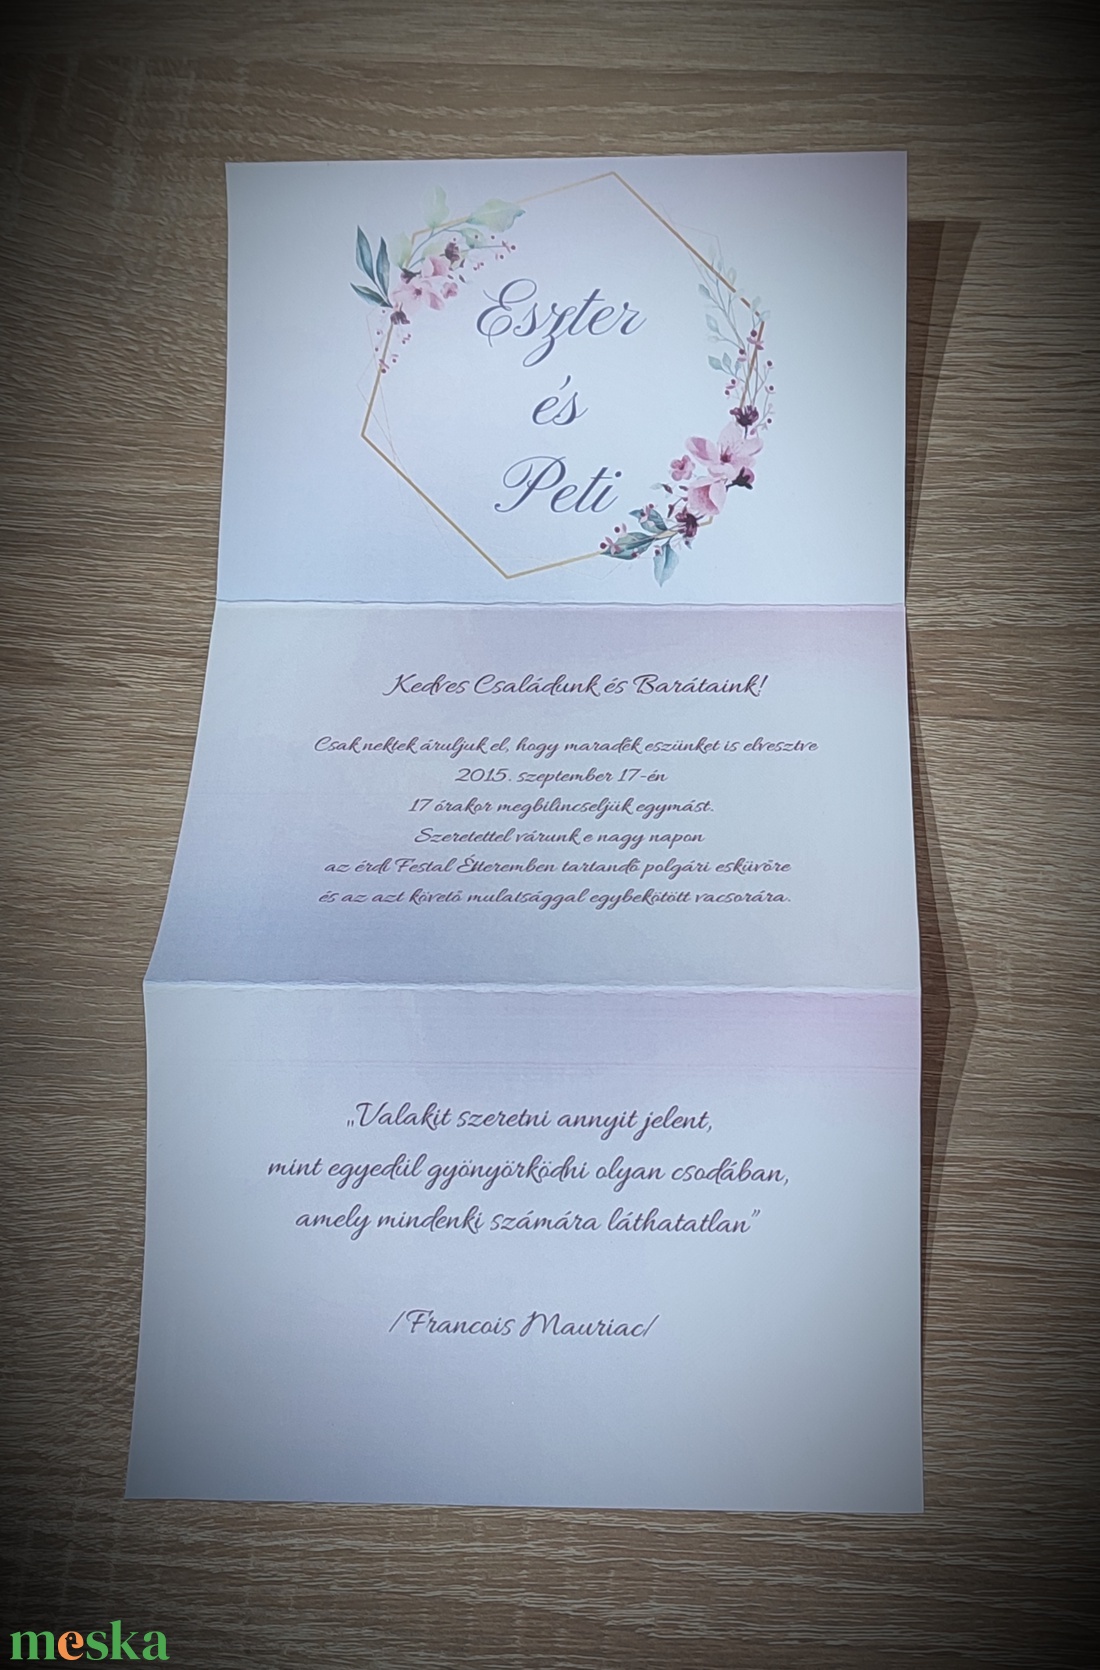 Eszter
és
Peti
Kedves Családunk és Barátaink!
Csak nektek áruljuk el, hogy maradék eszünket is elvesztve
2015. szeptember 17-én
17 órakor megbilincseljük egymást.
Szeretettel várunk e nagy napon
az érdi Festal Étteremben tartandó polgári esküvőre
és az azt követő mulatsággal egybekötött vacsorára.
„Valakit szeretni annyit jelent,
mint egyedül gyönyörködni olyan csodában,
amely mindenki számára láthatatlan”
/Francois Mauriac/
meska